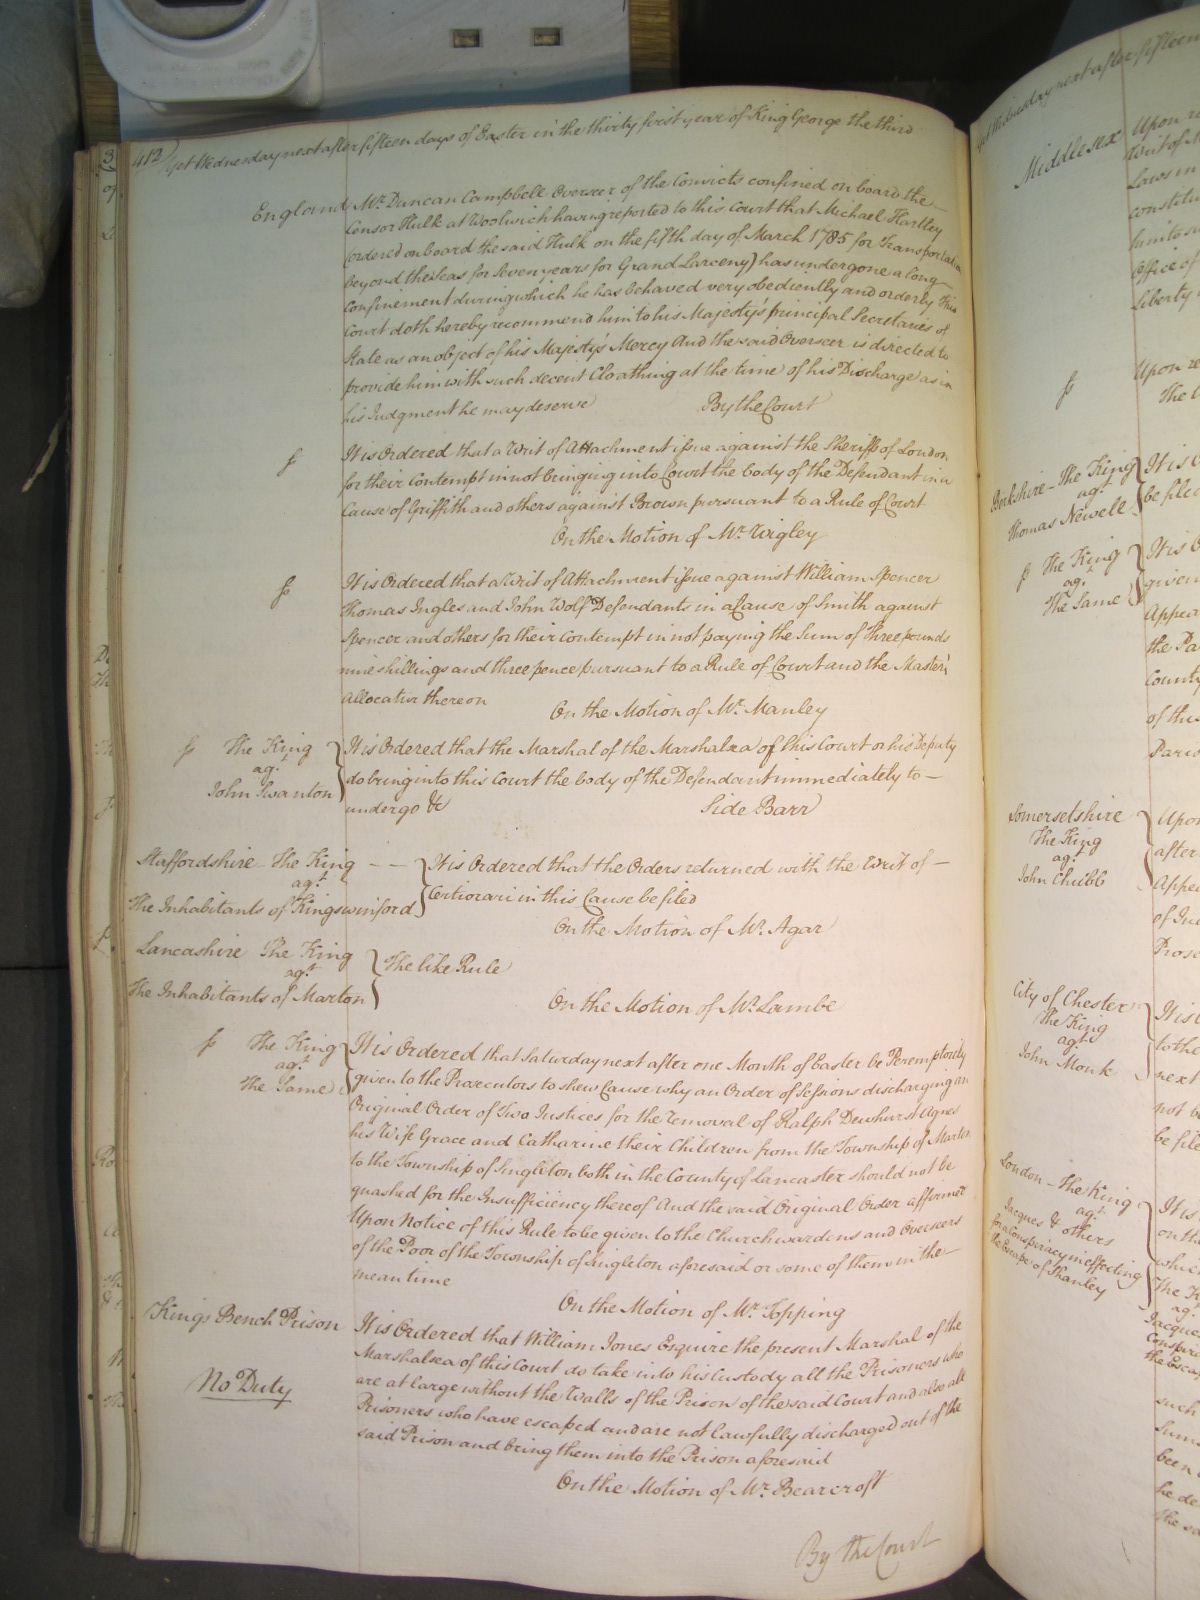 412) Yet Wednesday next after fifteen days of Easter in the thirty first year of King George the third
England Mr. Duncan Campbell Overseer of the Convicts confined on board the
Censor Hulk at Woolwich having reported to this Court that Michael Hartley
(ordered on board the said Hulk on the fifth day of March 1785 for Transportation
beyond the Seas for Seven years for Grand Larceny) has undergone a long
Confinement during which he has behaved very obediently and orderly This
Court doth hereby recommend him to his Majesty's principal Secretaries of
State as an object of his Majesty's Mercy And the said Overseer is directed to
provide him with such decent Cloathing at the time of his Discharge as in
his Judgment he may deserve By the Court
fs It is Ordered that a Writ of Attachment issue against the Sheriffs of London
for their Contempt in not bringing into Court the body of the Defendant in a
Cause of Griffith and others against Brown pursuant to a Rule of Court
On the Motion of Mr. Wigley
fs It is Ordered that a Writ of Attachment issue against William Spencer
Thomas Ingles and John Wolf Defendants in a Cause of Smith against
Spencer and others for their Contempt in not paying the Sum of three pounds
nine shillings and three pence pursuant to a Rule of Court and the Master's
allocatur thereon
On the Motion of Mr. Manley
fs The King
agt.
John Swanton
It is Ordered that the Marshal of the Marshalsea of this Court or his Deputy
do bring into this Court the body of the Defendant immediately to
undergo &c Side Barr
Staffordshire The King
agt.
The Inhabitants of Kingswinford
It is Ordered that the Orders returned with the Writ of
Certiorari in this Cause be filed
On the Motion of Mr. Agar
Lancashire The King
agt.
The Inhabitants of Marton
The like Rule
On the Motion of Mr. Lambe
fs The King
agt.
The Same
It is Ordered that Saturday next after one Month of Easter be Peremptorily
given to the Prosecutors to shew Cause why an Order of Sessions discharging an
Original Order of Two Justices for the Removal of Ralph Dewhurst Agnes
his Wife Grace and Catharine their Children from the Township of Marton
to the Township of Singleton both in the County of Lancaster should not be
quashed for the Insufficiency thereof And the said Original Order affirmed
Upon Notice of this Rule to be given to the Churchwardens and Overseers
of the Poor of the Township of Singleton aforesaid or some of them in the
mean time
On the Motion of Mr. Topping
Kings Bench Prison
No Duty
It is Ordered that William Jones Esquire the present Marshal of the
Marshalsea of this Court do take into his Custody all the Prisoners who
are at large without the Walls of the Prison of the said Court and also all
Prisoners who have escaped and are not lawfully discharged out of the
said Prison and bring them into the Prison aforesaid
On the Motion of Mr. Bearcroft
By the Court
Yet Wednesday next after fifteen
Middlesex Upon
Writ of
Laws in
Office of
Liberty
fs Upon
Berkshire The King
agt.
Thomas Newell
It is
be filed
fs The King
agt.
The Same
It is
given
Appea
the Pa
County
of the
Paris
Somersetshire
The King
agt.
John Chubb
Upon
after
Appea
Prose
City of Chester
The King
agt.
John Monk
It is
to the
next
not b
be file
London The King
agt.
Jacques & others
for a Conspiracy in effecting
the Escape of Shanley
It is
on the
which
The K
agt.
Jacques
Conspira
the Escap
such
Summ
been
he de
the sa